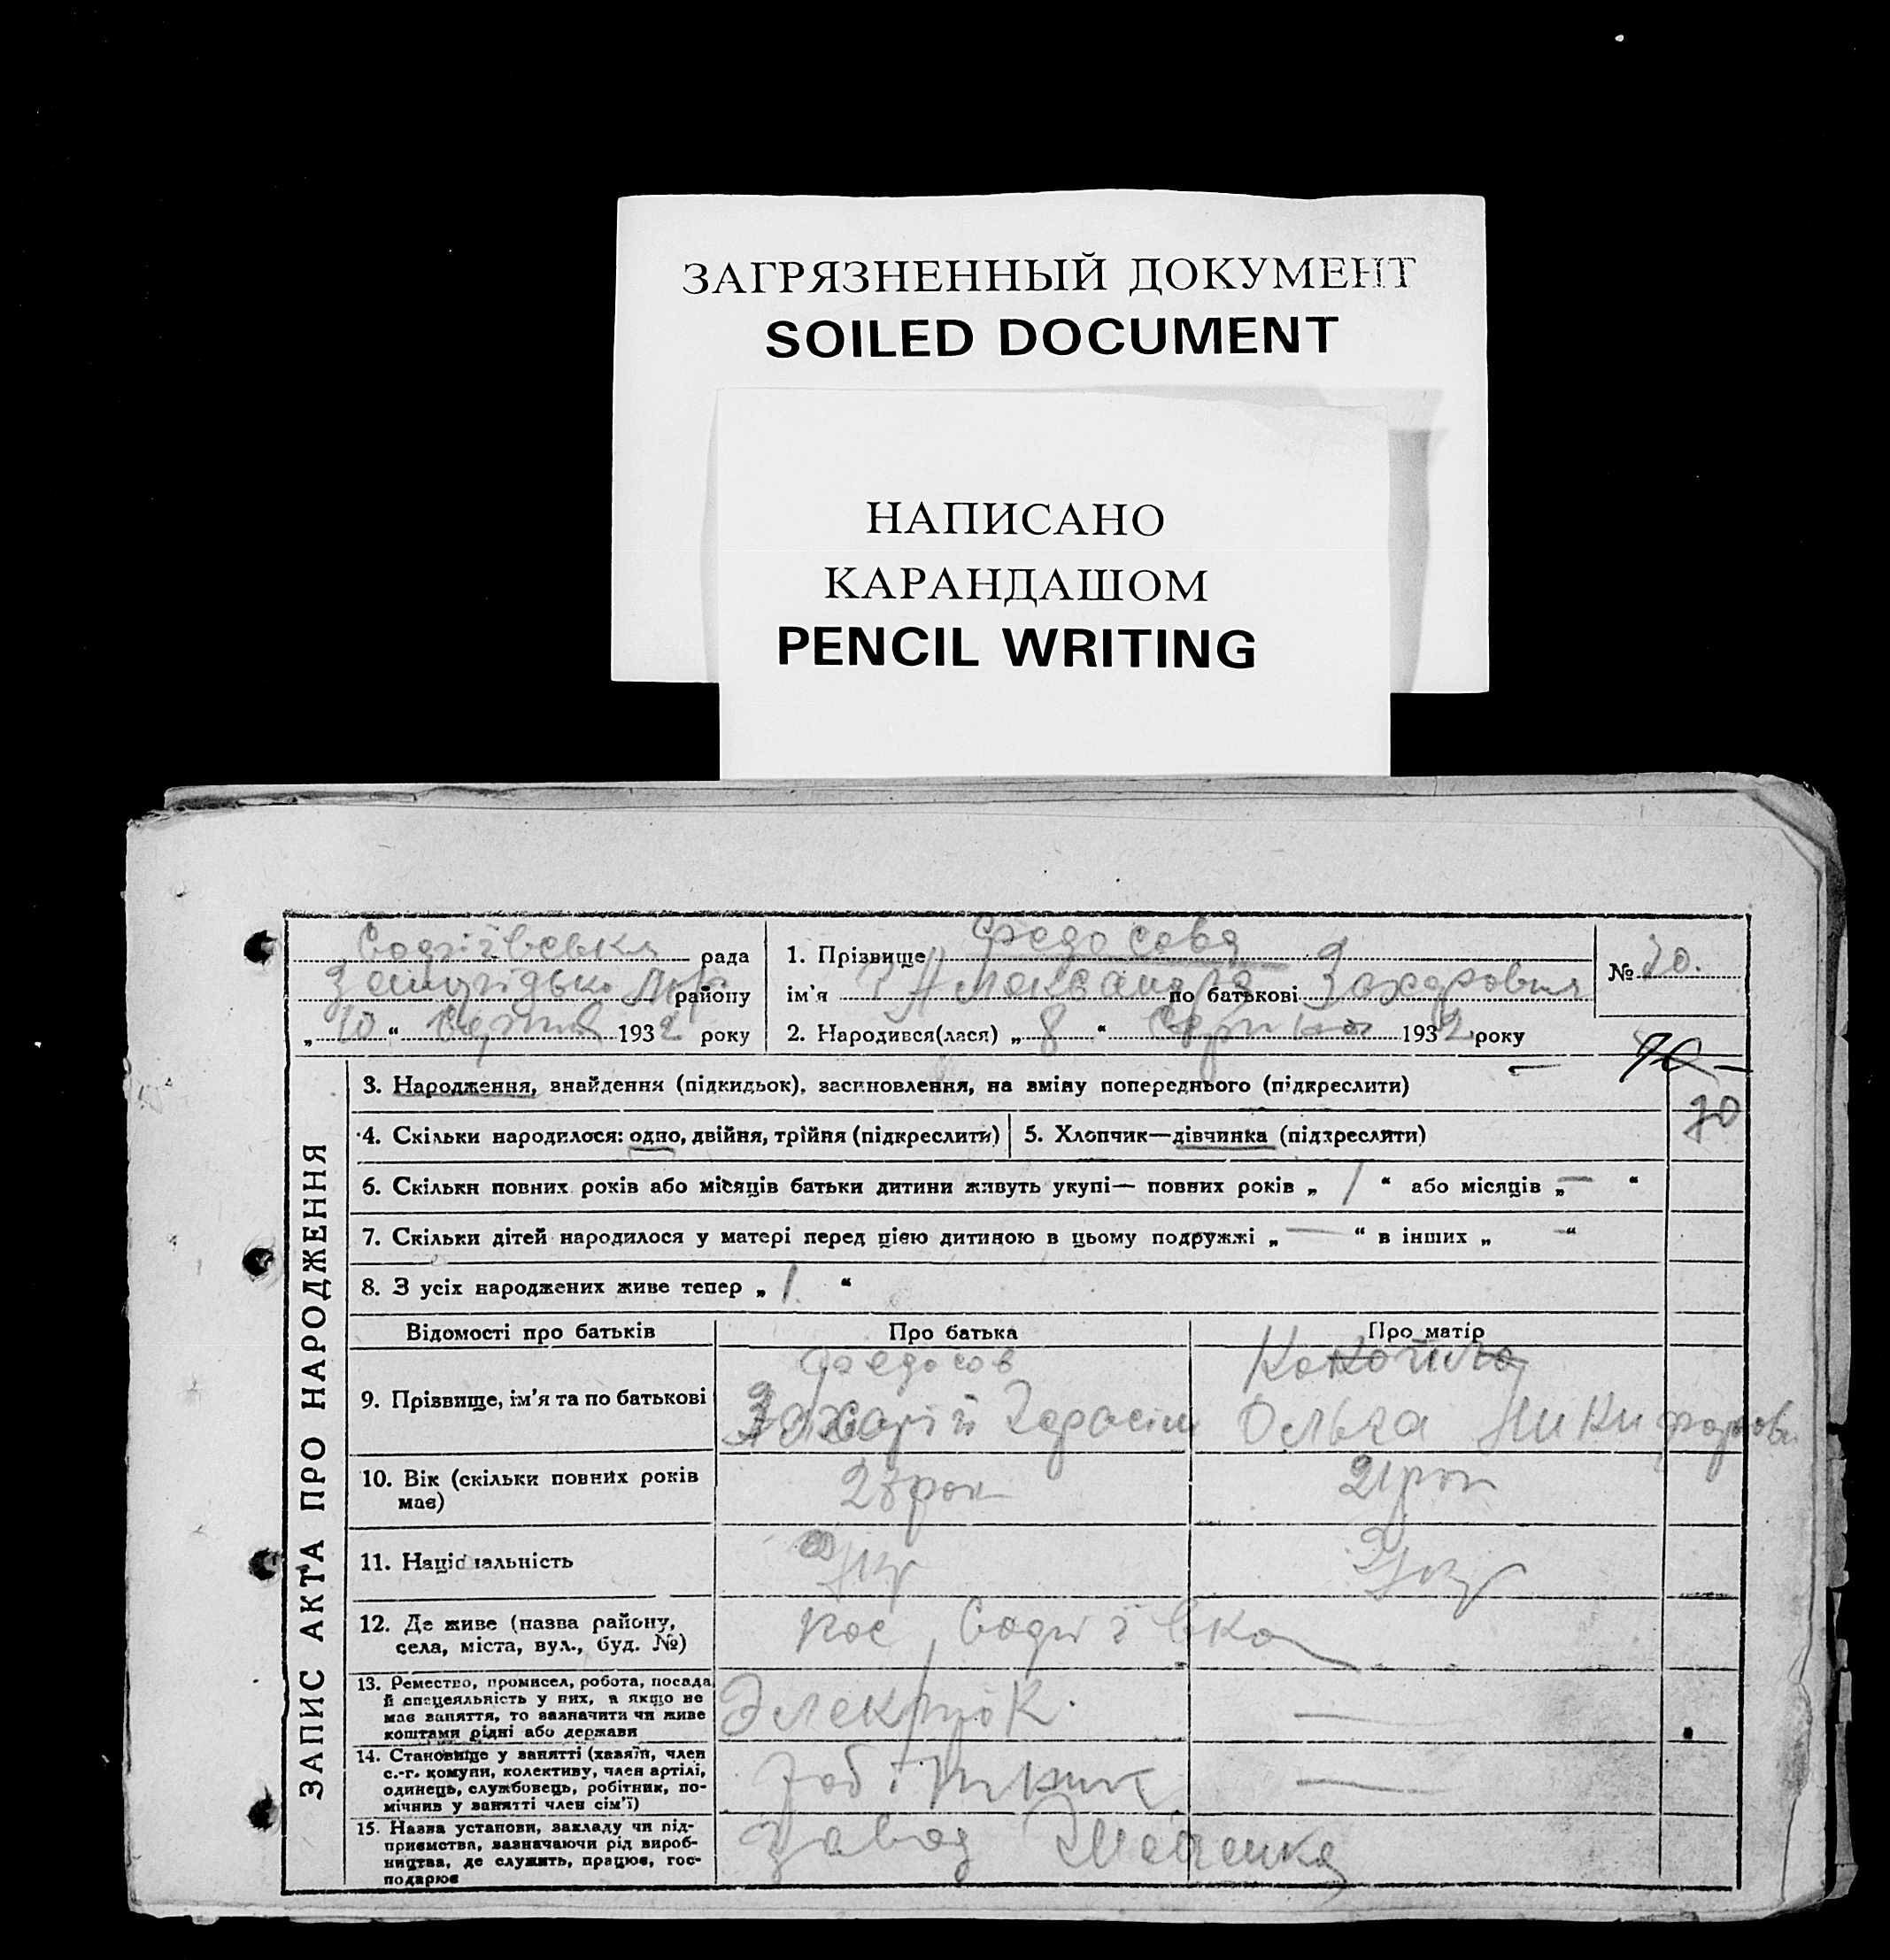 ЗАГРЯЗНЕННЫЙ ДОКУМЕНТ
SOILED DOCUMENT
НАПИСАНО
КАРАНДАШОМ
PENCIL WRITING
рада
району
„10“ 1932 року
1. Прізвище Федосова
ім'я Александра по батькові Захаровна
2. Народився(лася) „8“ серпня 1932 року
№ 70.
70
70
ЗАПИС АКТА ПРО НАРОДЖЕННЯ
3. Народження, внайдення (підкидьок), засиновлення, на вміну попереднього (підкреслити)
4. Скільки народилося: одно, двійня, трійня (підкреслити)
5. Хлопчик—дівчинка (підкреслити)
6. Скільки повних років або місяців батьки дитини живуть укупі— повних років „ 1 “ або місяців „ — “
7. Скільки дітей народилося у матері перед цією дитиною в цьому подружжі „ — “ в інших „ — “
8. З усіх народжених живе тепер „ 1 “
Відомості про батьків
Про батька
Про матір
9. Прізвище, ім'я та по батькові
Федосов
Захарій Герасим
Ольга Никифоровн
10. Вік (скільки повних років
має)
21 рок
11. Національність
Укр
Укр
12. Де живе (назва району,
села, міста, вул., буд. №)
13. Ремество, промисел, робота, посада
й спецеяльність у них, а якщо не
має ваняття, то вазначити чи живе
коштами рідні або держави
Электрик
—
14. Становище у ванятті (хазяїн, член
с.-г. комуни, колективу, член артілі,
одинець, службовець, робітник, по-
мічнив у ванятті член сім'ї)
робітник
—
15. Назва установи, закладу чи під-
приємства, вазначаючи рід вироб-
ництва, де служить, працює, гос-
подарює
завод